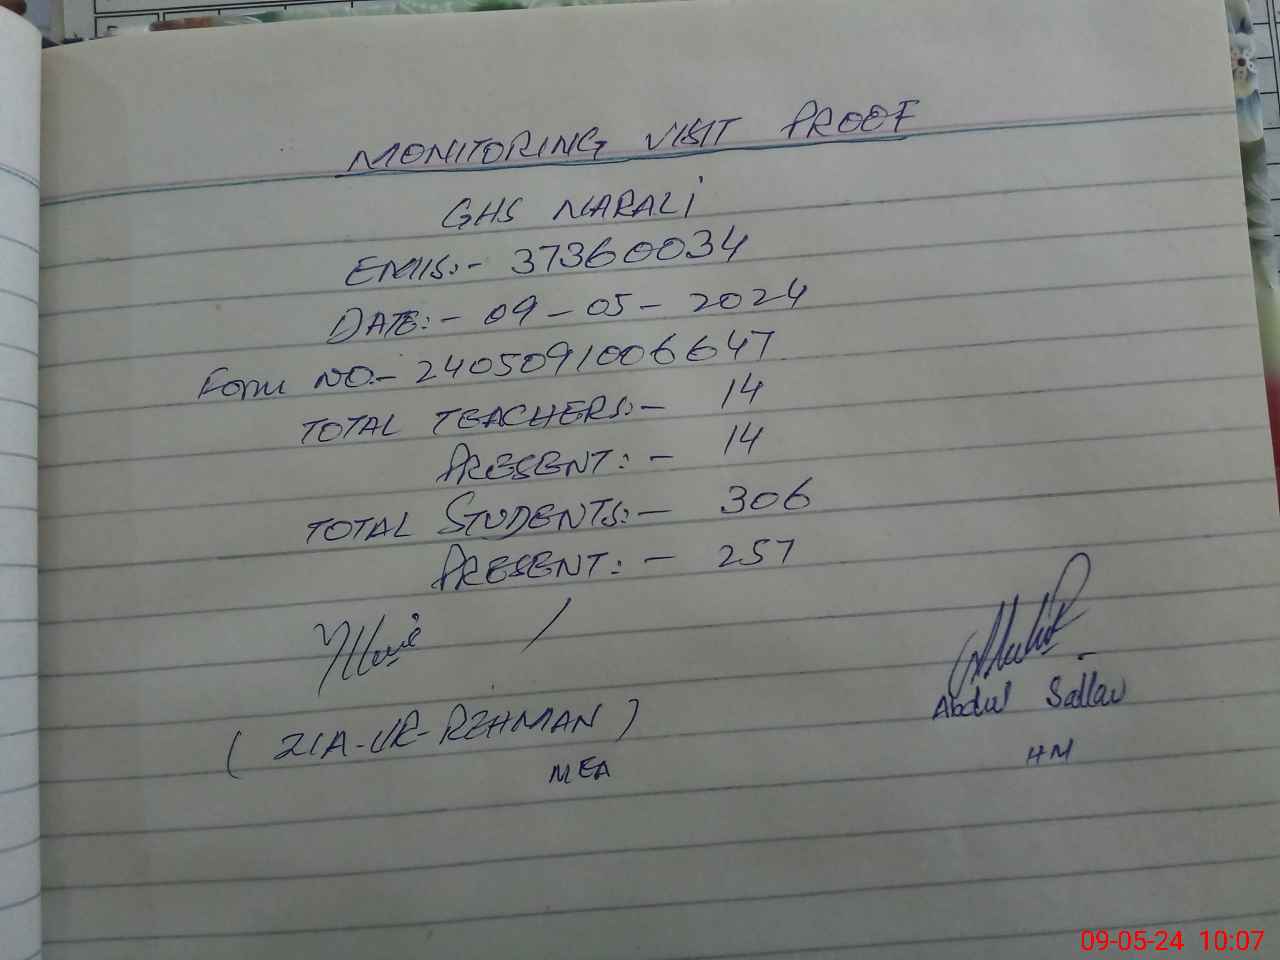 MONITORING VISIT PROOF
GHS NARALI
EMIS:- 37360034
DATE:- 09-05-2024
Form NO:- 2405091006647
TOTAL TEACHERS:- 14
PRESENT:- 14
TOTAL STUDENTS:- 306
PRESENT:- 257
(ZIA-UR-REHMAN)
MEA
Abdul
HM
09-05-24 10:07